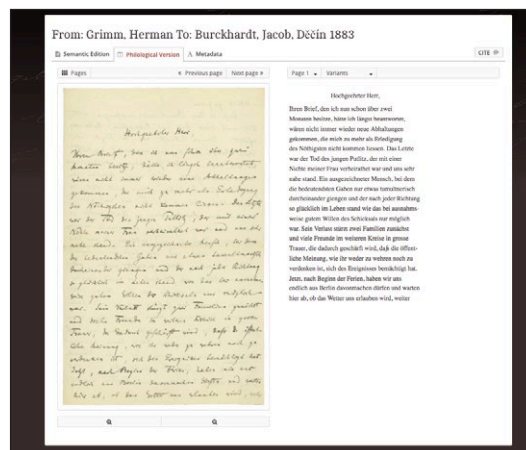 From: Grimm, Herman To: Burckhardt, Jacob, Děčín 1883
Semantic Edition
Philological Version
Metadata
CITE
Pages
Previous page
Next page
Page 1
Variants
Hochgeehrter Herr,
Ihren Brief, den ich nun schon über zwei
Monaten besitze, hätte ich längst beantwortet,
wären nicht immer wieder neue Abhaltungen
gekommen, die mich zu mehr als Erledigung
des Nöthigsten nicht kommen liessen. Das Letzte
war der Tod des jungen Pulitz, der mit einer
Nichte meiner Frau verheirathet war und uns sehr
nahe stand. Ein ausgezeichneter Mensch, bei dem
die bedeutendsten Gaben nur etwas tumultuarisch
durcheinander giengen und der nach jeder Richtung
so glücklich im Leben stand wie das bei ausnahms
weise gutem Willen des Schicksals nur möglich
war. Sein Verlust stürzt zwei Familien zunächst
und viele Freunde im weiteren Kreise in grosse
Trauer, die dadurch geschärft wird, daß die öffent-
liche Meinung, wie ihr weder zu wehren noch zu
verdenken ist, sich des Ereignisses bemächtigt hat.
Jetzt, nach Beginn der Ferien, haben wir uns
endlich aus Berlin davonmachen dürfen und warten
hier ab, ob das Wetter uns erlauben wird, weiter